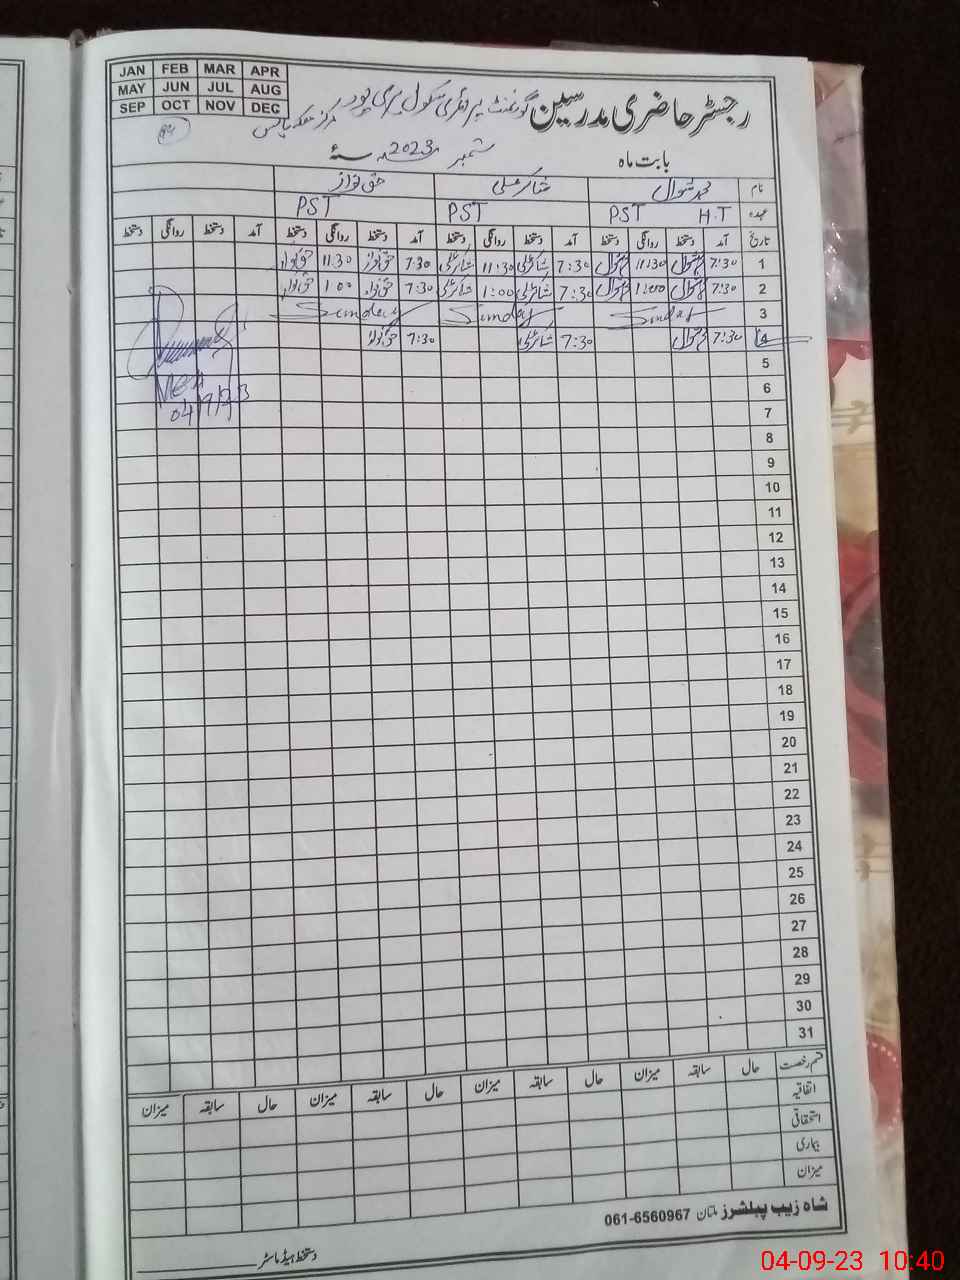 JAN FEB MAR APR
MAY JUN JUL AUG
SEP OCT NOV DEC
رجسٹر حاضری مدرسین گورنمنٹ پرائمری سکول
بابت ماہ ستمبر 2023ء
نام محمد شوال شاکر علی حق نواز
عہدہ H.T PST PST PST
تاریخ آمد دستخط روانگی دستخط آمد دستخط روانگی دستخط آمد دستخط روانگی دستخط آمد دستخط روانگی دستخط
1 7:30 شوال 11:30 شوال 7:30 شاکر علی 11:30 شاکر علی 7:30 حق نواز 11:30 حق نواز
2 7:30 شوال 1:00 شوال 7:30 شاکر علی 1:00 شاکر علی 7:30 حق نواز 1:00 حق نواز
3 Sunday Sunday Sunday
4 7:30 شوال 7:30 شاکر علی 7:30 حق نواز
5
6
04/9/23
7
8
9
10
11
12
13
14
15
16
17
18
19
20
21
22
23
24
25
26
27
28
29
30
31
قسم رخصت حال سابقہ میزان حال سابقہ میزان حال سابقہ میزان حال سابقہ میزان
اتفاقیہ
استحقاقی
بیماری
میزان
شاہ زیب پبلشرز ملتان 061-6560967
دستخط ہیڈ ماسٹر
04-09-23 10:40